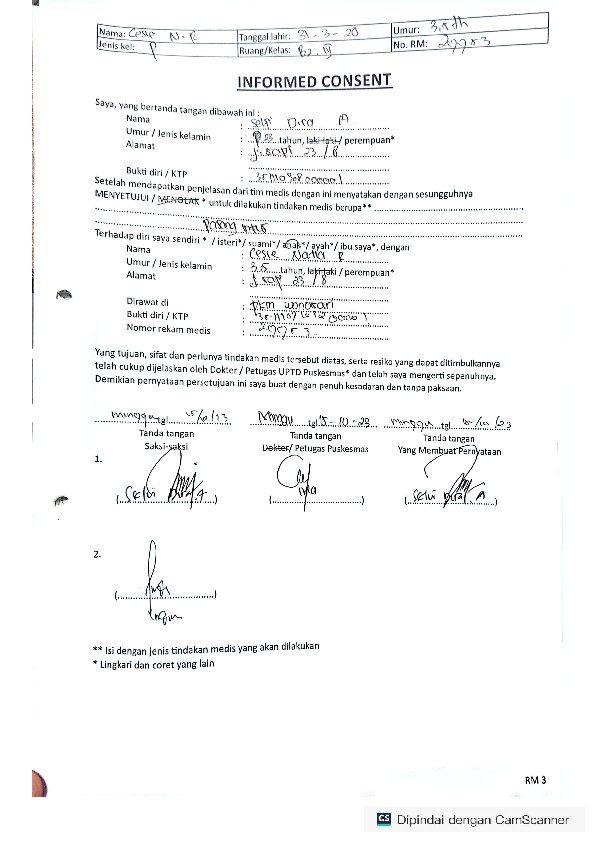 Nama: Cesie N.R Tanggal lahir: 31-3-20 Umur: 3,5 th
Jenis kel: P Ruang/Kelas: No. RM:
INFORMED CONSENT
Saya, yang bertanda tangan dibawah ini :
Nama : Selvi Dira A
Umur / Jenis kelamin : 23 tahun, laki-laki / perempuan*
Alamat : 23 / 8
Bukti diri / KTP :
Setelah mendapatkan penjelasan dari tim medis dengan ini menyatakan dengan sesungguhnya
MENYETUJUI / MENOLAK * untuk dilakukan tindakan medis berupa**
Pasang infus
Terhadap diri saya sendiri * / isteri*/ suami*/ anak*/ ayah*/ ibu saya*, dengan
Nama : Cesie Nadia R
Umur / Jenis kelamin : 3,5 tahun, laki-laki / perempuan*
Alamat : 23 / 8
Dirawat di : PKM Wonosari
Bukti diri / KTP :
Nomor rekam medis :
Yang tujuan, sifat dan perlunya tindakan medis tersebut diatas, serta resiko yang dapat ditimbulkannya
telah cukup dijelaskan oleh Dokter / Petugas UPTD Puskesmas* dan telah saya mengerti sepenuhnya.
Demikian pernyataan persetujuan ini saya buat dengan penuh kesadaran dan tanpa paksaan.
minggu tgl Minggu tgl 15-10-23 minggu tgl
Tanda tangan Tanda tangan Tanda tangan
Saksi-saksi Dokter/ Petugas Puskesmas Yang Membuat Pernyataan
1.
(Selvi Dira A) ( ) (Selvi Dira A)
2.
( )
** Isi dengan jenis tindakan medis yang akan dilakukan
* Lingkari dan coret yang lain
RM 3
CS Dipindai dengan CamScanner